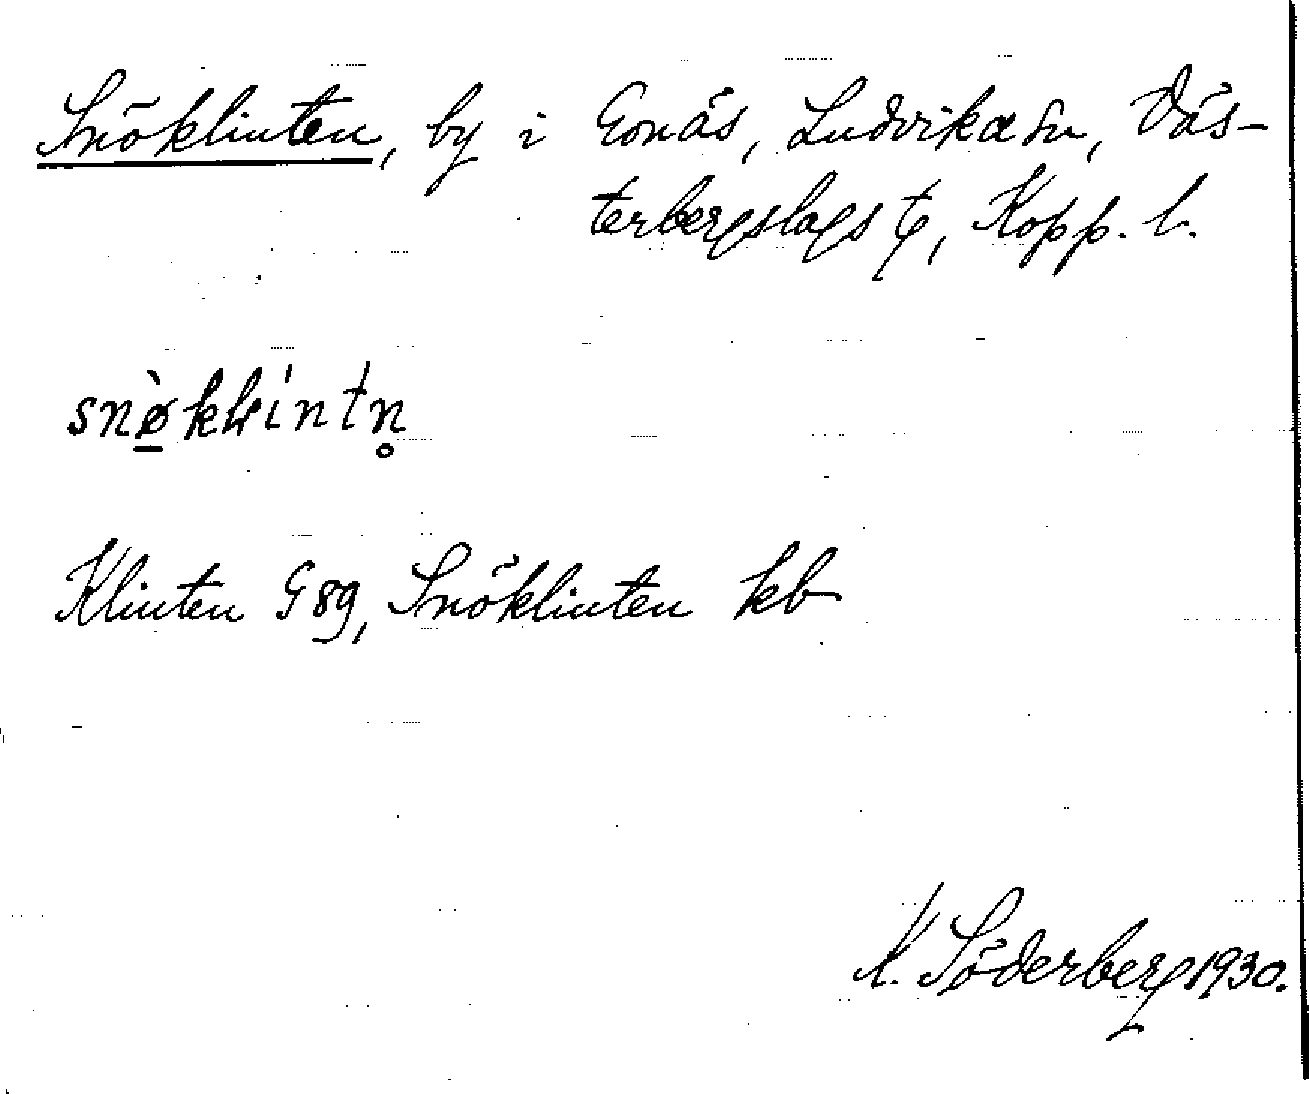 Snöklinten, by i Gonäs, Ludvika sn, Väs-
terbergslags tg, Kopp. l.
snø̲̀kli̍ntn̥
Klinten G 89, Snöklinten kb
K. Söderberg 1930.